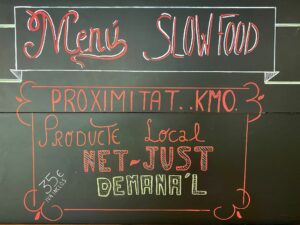 Menú SLOW FOOD
PROXIMITAT..KMO.
PRODUCTE Local
NET-JUST
DEMANA'L
35€